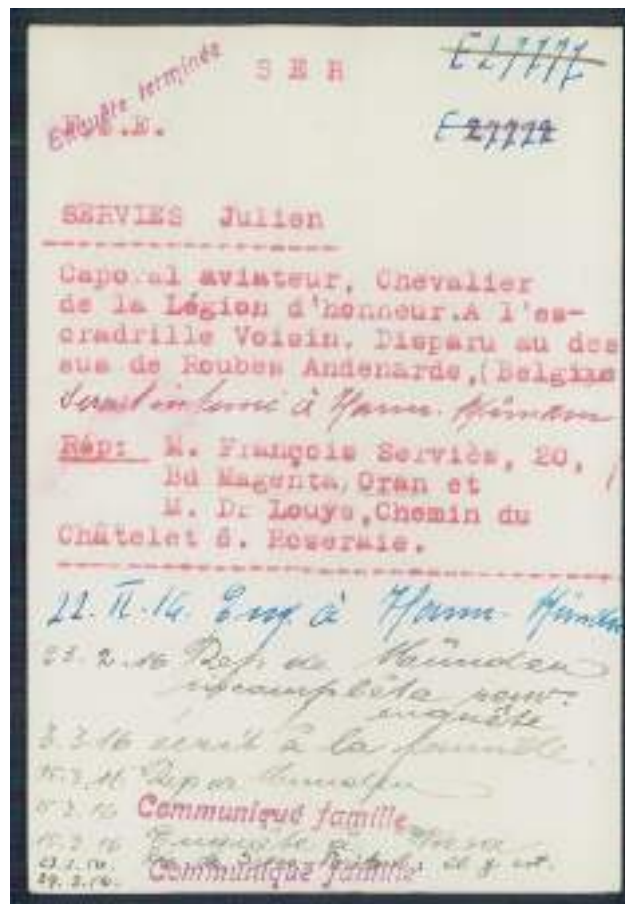 Enquête terminée
S E R
E 27777
E 27772
SERVIES Julien
Caporal aviateur, Chevalier
de la Légion d'honneur.A l'es-
cradrille Voisin. Disparu au des
sus de Roubes Andenarde,(Belgius
Serait interné à Hann. Münden
Rép: M. François Serviès, 20,
Bd Magenta,Oran et
M. Dr Louys,Chemin du
Châtelet 6. Roseraie.
22. II. 16. Enq. à Hann. Münden
23. 2. 16 Rep de Münden
incomplète nouv.
enquête
3.3.16 écrit à la famille.
Rep de Münden
Communiqué famille
15.3.16 Enquête
Communiqué famille